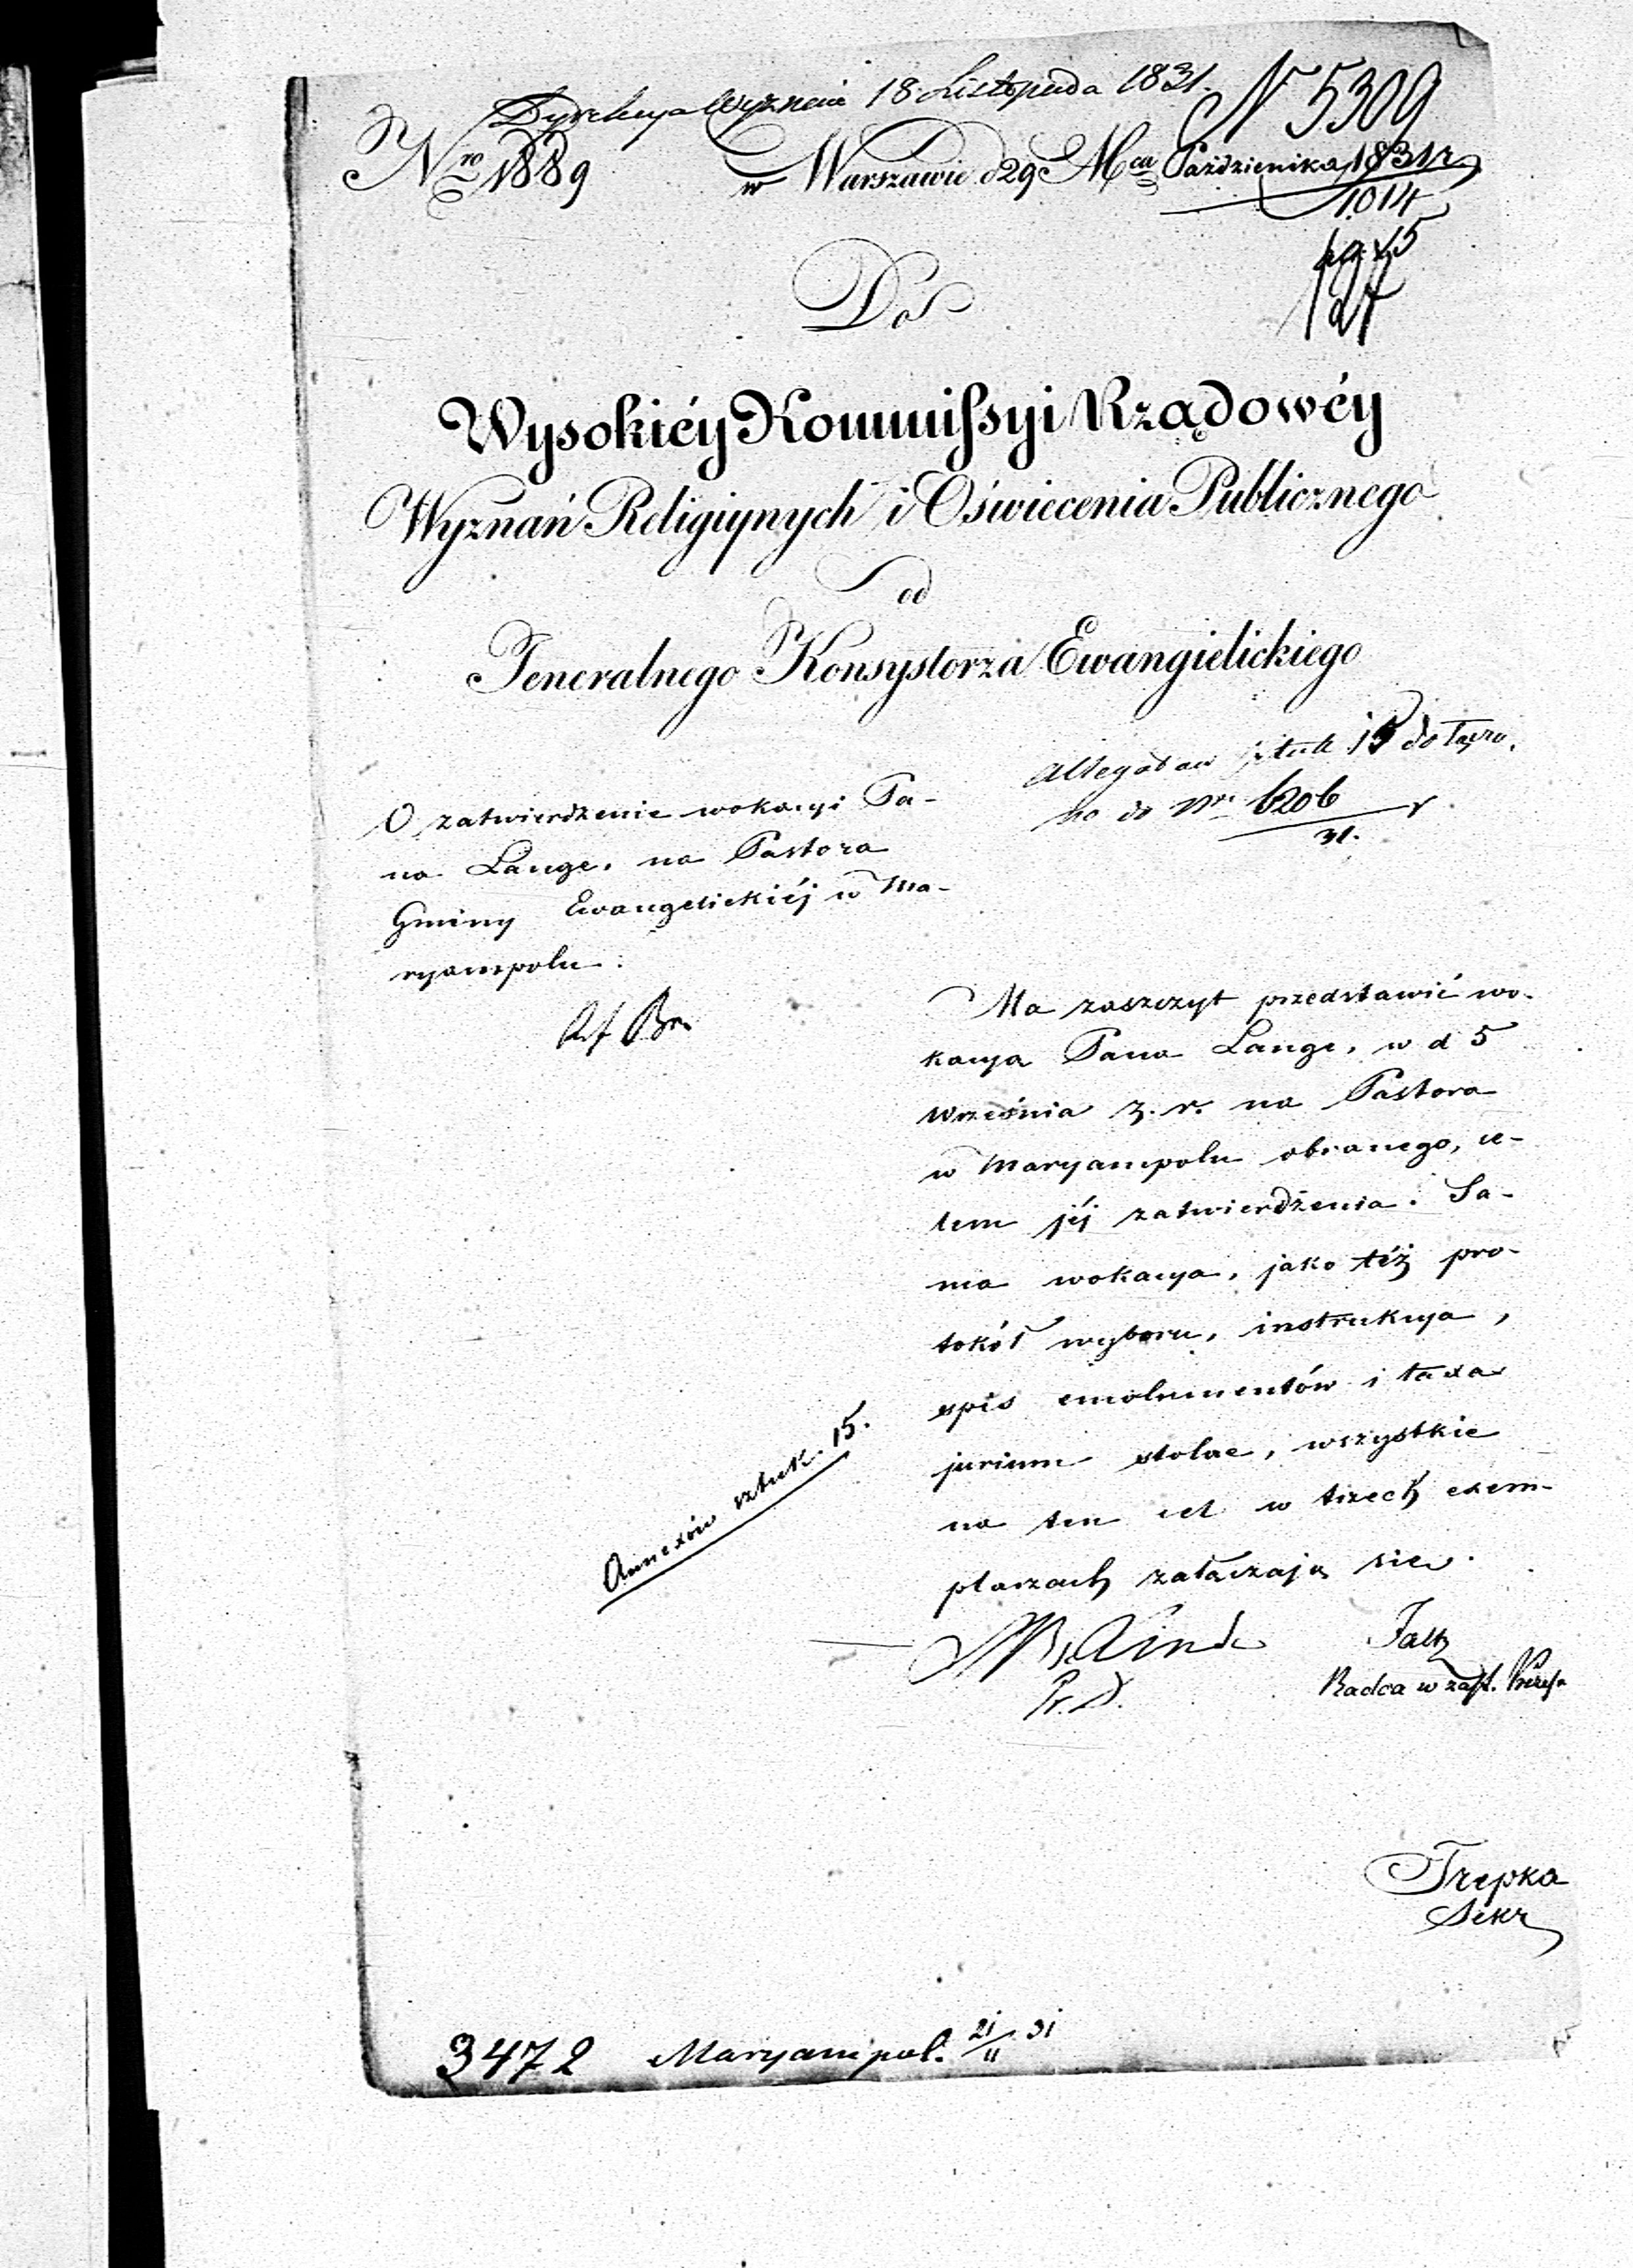 Dyrekcya Wyznań 18 Listopada 1831.
N 5309
Nro 1889
w Warszawie d 29 Mca Października 1831 r
1014
Do
Wysokiéy Kommissyi Rządowéy
Wyznań Religiynych i Oświecenia Publicznego
od
Jeneralnego Konsystorza Ewangielickiego
Allegatów sztuk 15 dołączo.
no do Nru 6206
31.
O zatwierdzenie wokacyi Pa-
na Lange, na Pastora
Gminy Ewangelickiéj w Ma-
ryampolu.
Ma zaszczyt przedstawić wo-
kacyą Pana Lange, w d 5
Września z. r. na Pastora
w Maryampolu obranego, ce-
lem jéj zatwierdzenia. Sa-
ma wokacya, jako téż pro-
tokół wyboru, instrukcya,
spis emolumentów i taxa
jurium stolae, wszystkie
na ten cel w trzech exem-
plarzach załączają się.
Annexów sztuk. 15.
Falk
Radca w zast. Prezesa
Trepka
Sekr
3472 Maryampol. 21/11 31